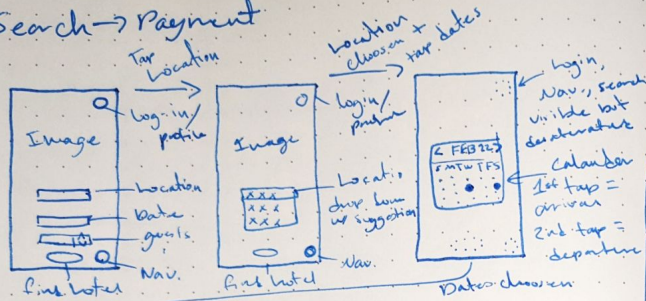 Search → Payment
Tap
Location
Location
choosen +
tap dates
Image
Log-in/
profile
Location
Date
guests
Nav.
find hotel
Image
Login/
Locatio
drop down
w suggestion
Nav.
find hotel
< FEB 22 >
S M T W T F S
Login,
Nav., search
visible but
desaturated
Calander
1st tap =
arrival
2nd tap =
departure
Dates choosen